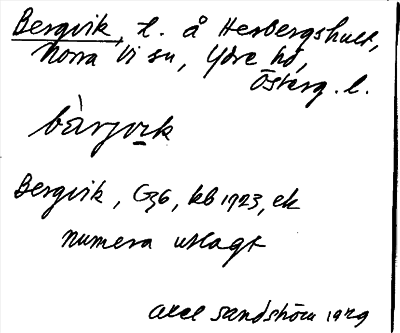 Bergvik, t. å Herbergshult,
Norra Vi sn, Ydre hd,
Österg. l.
bärjvik
Bergvik, G36, kb 1923, ek
numera utlagt
Axel Sandström 1929